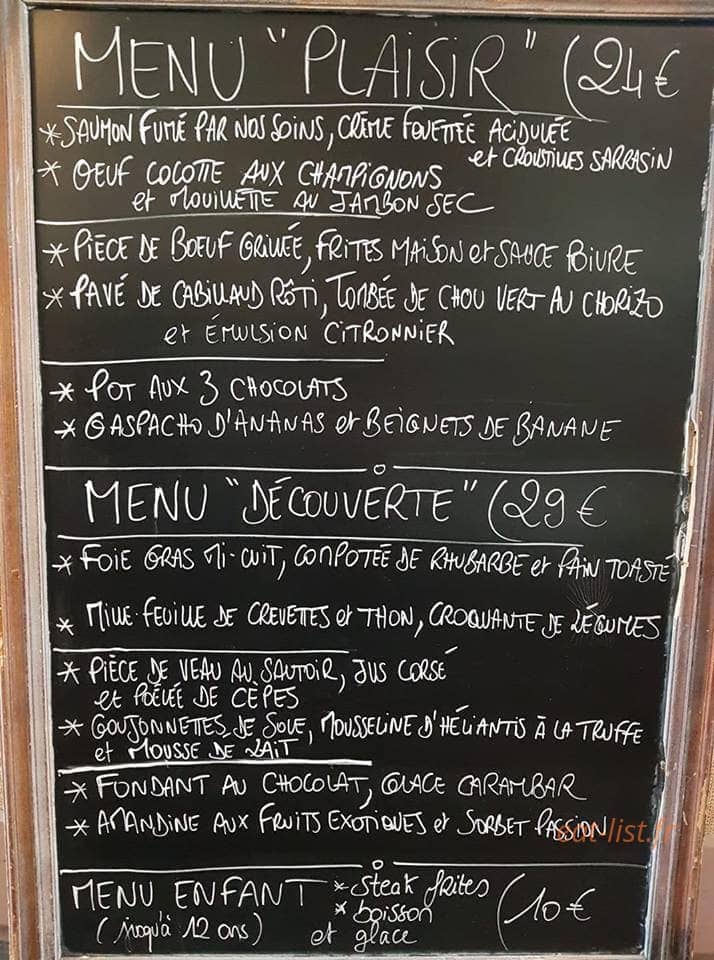 MENU "PLAISIR" (24€
*SAUMON FUMÉ PAR NOS SOINS, CRÈME FOUETTÉE ACIDULÉE
et CROUSTILLES SARRASIN
* OEUF COCOTTE AUX CHAMPIGNONS
et MOUILLETTE AU JAMBON SEC
* PIÈCE DE BOEUF GRILLÉE, FRITES MAISON et SAUCE POIVRE
* PAVÉ DE CABILLAUD RÔTI, TOMBÉE DE CHOU VERT AU CHORIZO
et ÉMULSION CITRONNIER
* POT AUX 3 CHOCOLATS
* GASPACHO D'ANANAS et BEIGNETS DE BANANE
MENU "DÉCOUVERTE" (29€
* FOIE GRAS MI-CUIT, COMPOTÉE DE RHUBARBE et PAIN TOASTÉ
* MILLE-FEUILLE DE CREVETTES et THON, CROQUANTE DE LÉGUMES
* PIÈCE DE VEAU AU SAUTOIR, JUS CORSÉ
et POÊLÉE DE CÈPES
* GOUJONNETTES DE SOLE, MOUSSELINE D'HÉLIANTIS À LA TRUFFE
et MOUSSE DE LAIT
* FONDANT AU CHOCOLAT, GLACE CARAMBAR
* AMANDINE AUX FRUITS EXOTIQUES et SORBET PASSION
eat-list.fr
MENU ENFANT * steak frites (10€
(jusqu'à 12 ans) * boisson
et glace